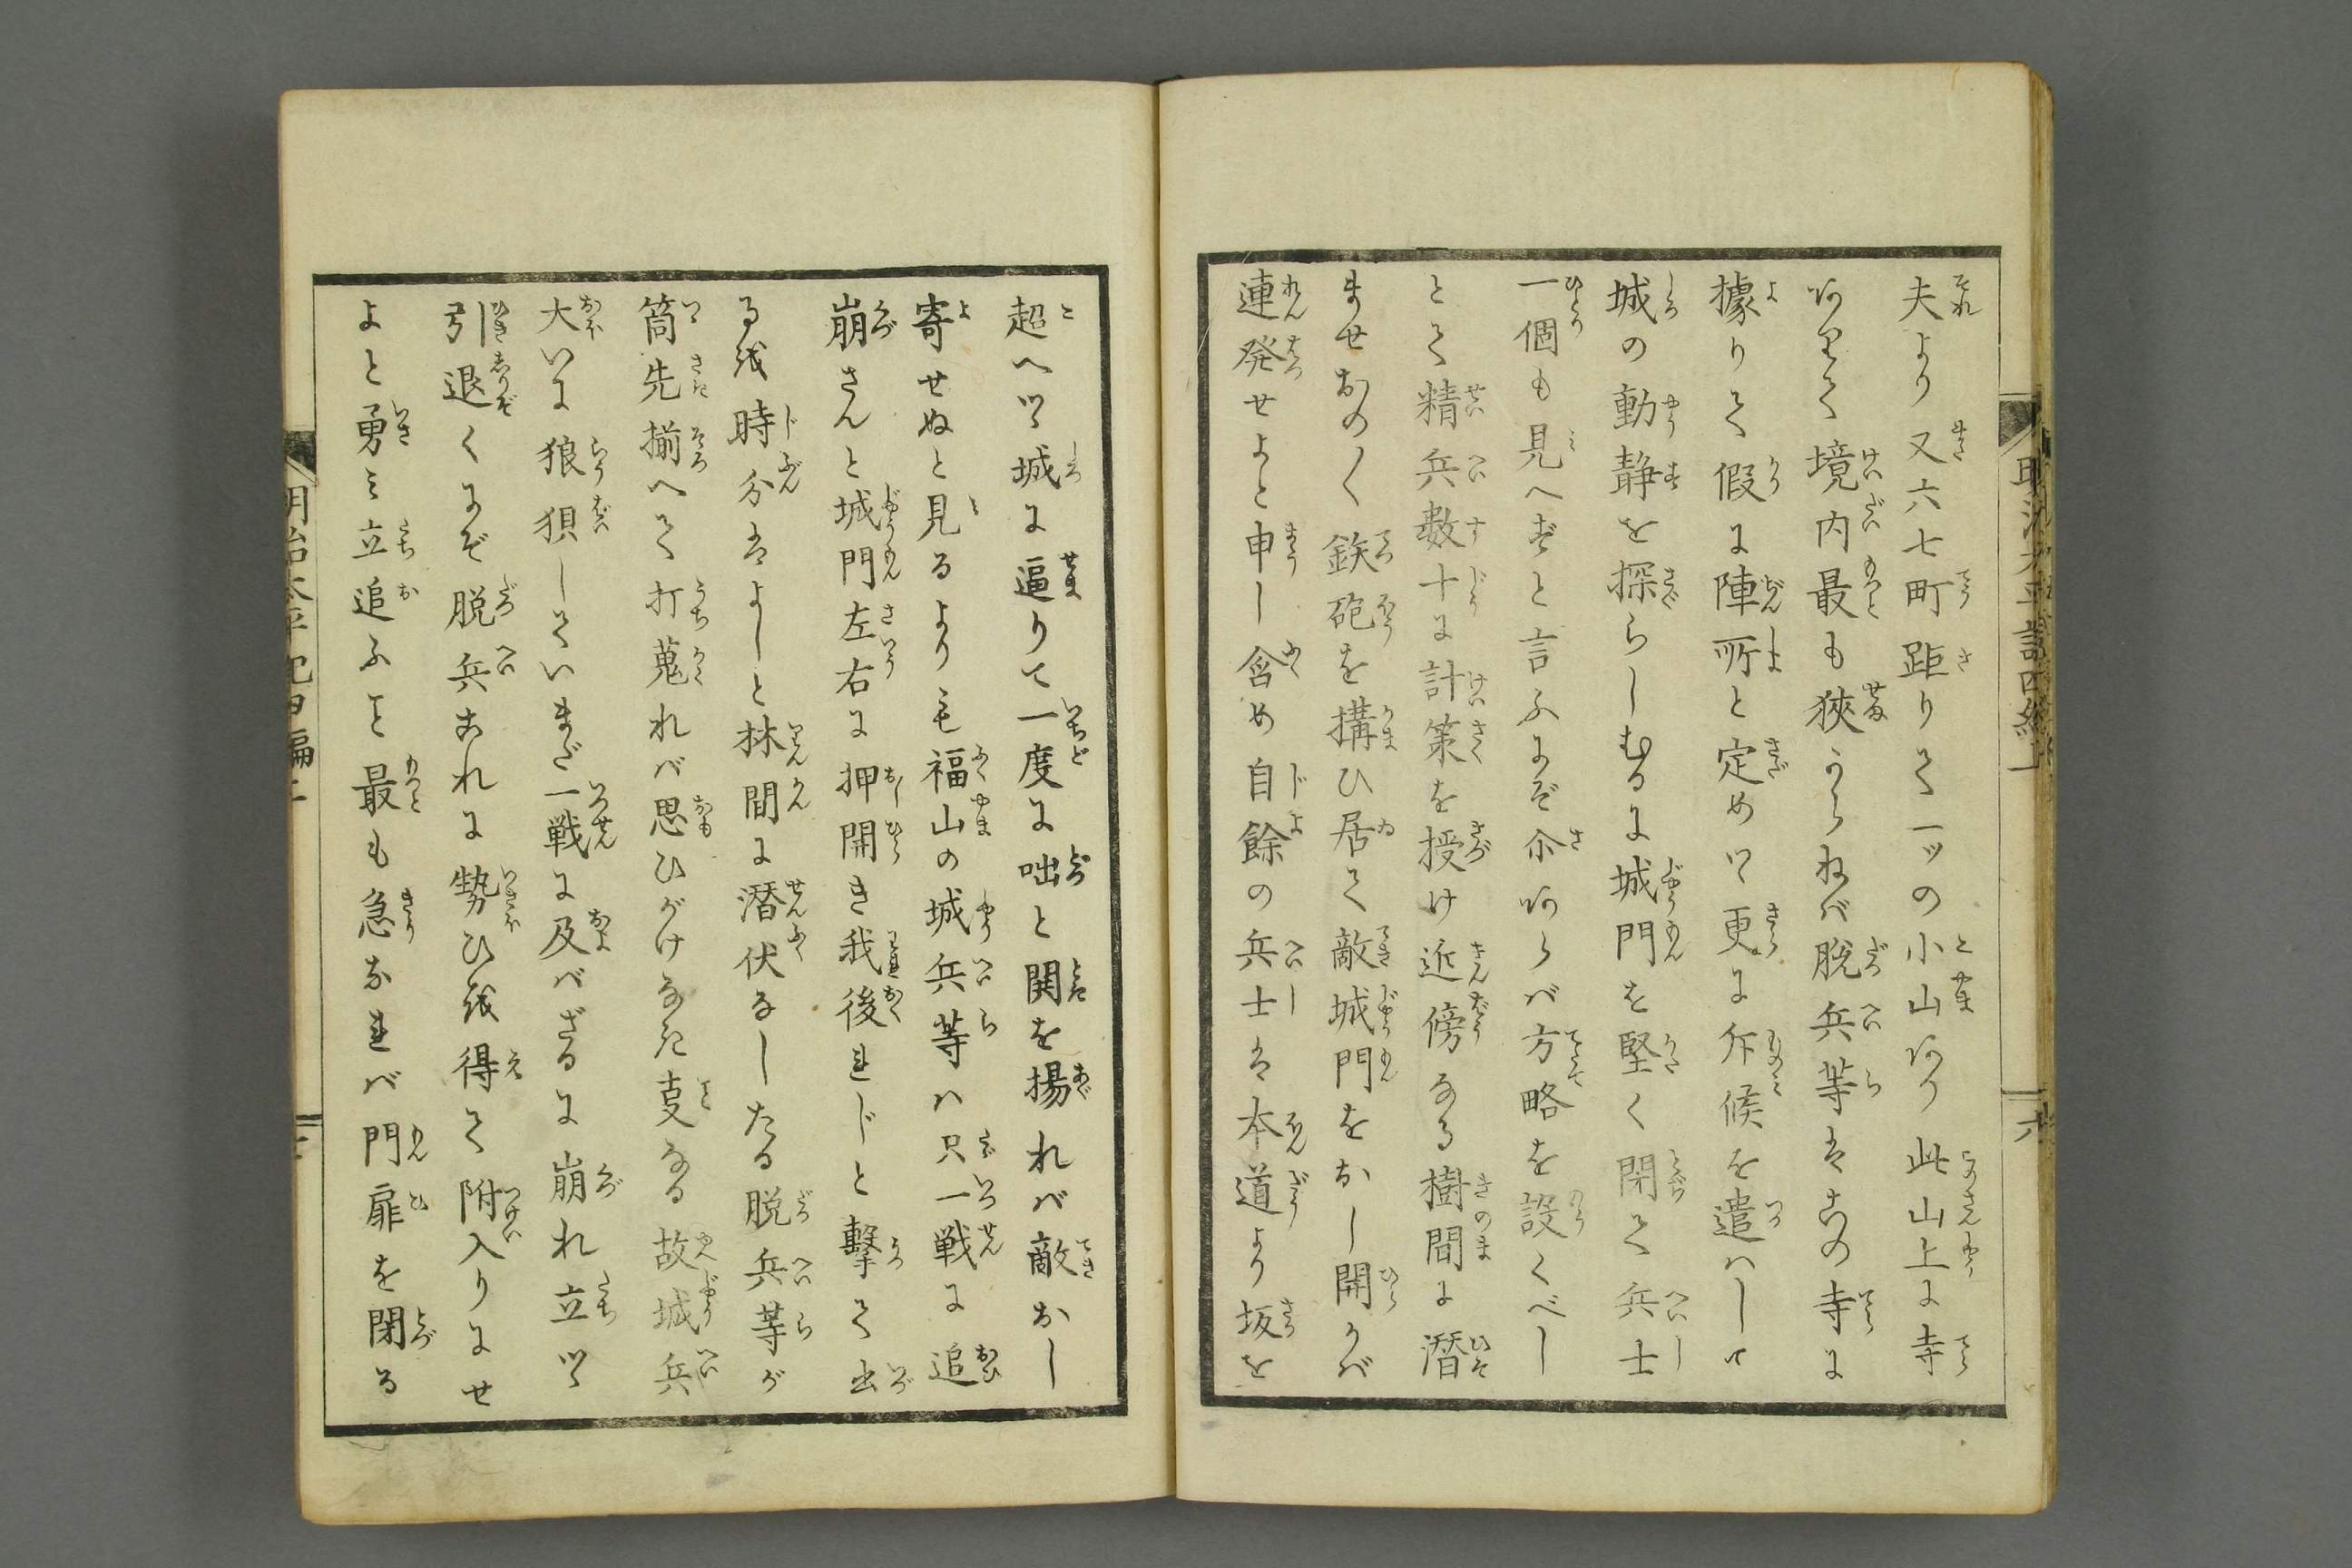 夫より又六七町距りて一ツの小山あり此山上に寺
ありて境内最も狹からねば脱兵等はこの寺に
據りて假に陣所と定めつゝ更に斥候を遣はして
城の動静を探らしむるに城門を堅く閉て兵士
一個も見へずと言ふにぞ尓あらば方略を設くべし
とて精兵数十に計策を授け近傍なる樹間に潜
ませおの〱鉄砲を搆ひ居て敵城門をおし開かば
連発せよと申し含め自餘の兵士は本道より坂を
超へツヽ城に逼りて一度に咄と閧を揚れば敵おし
寄せぬと見るよりも福山の城兵等ハ只一戦に追
崩さんと城門左右に押開き我後れじと擊て出
るを時分はよしと林間に潜伏なしたる脱兵等が
筒先揃へて打蒐れば思ひがけなき叓なる故城兵
大いに狼狽していまだ一戦に及ばざるに崩れ立ツヽ
引退くにぞ脱兵これに勢ひを得て附入りにせ
よと勇み立追ふこと最も急なれば門扉を閉る
明治太平記四編上
六
明治太平記四編上